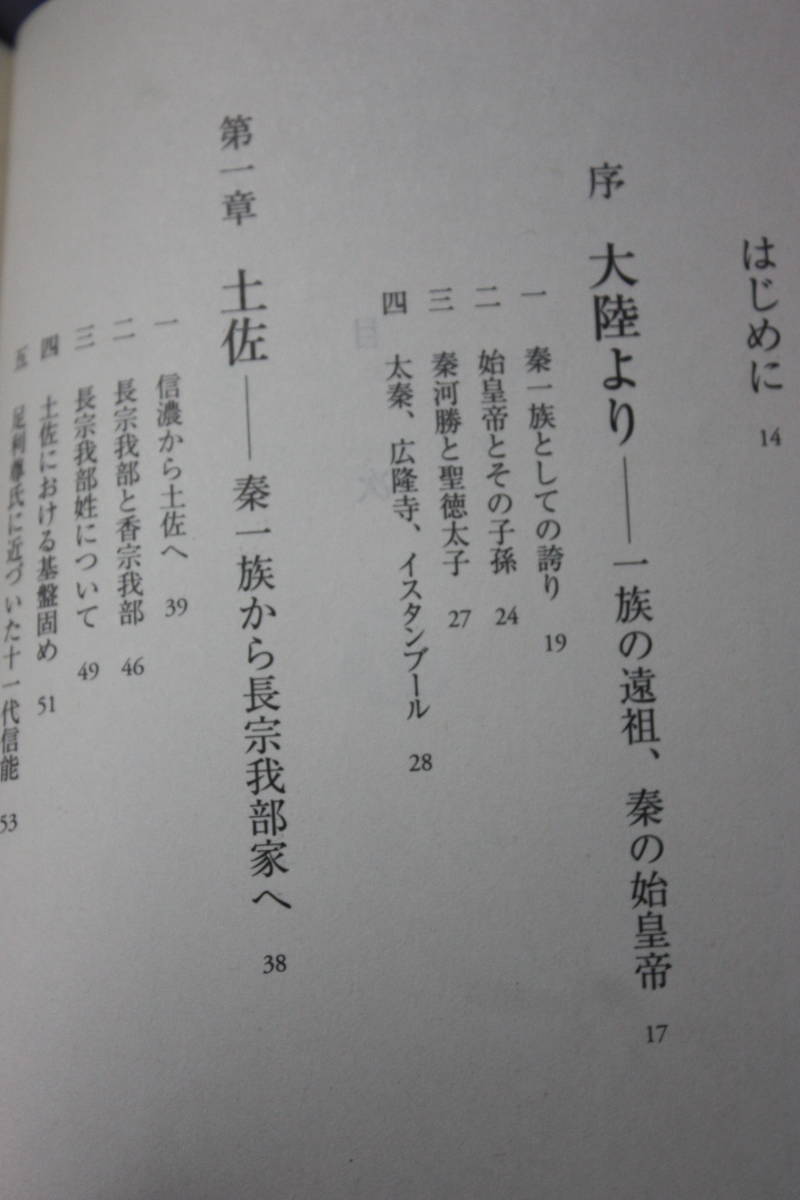 はじめに 14
序 大陸より――一族の遠祖、秦の始皇帝 17
一 秦一族としての誇り 19
二 始皇帝とその子孫 24
三 秦河勝と聖徳太子 27
四 太秦、広隆寺、イスタンブール 28
第一章 土佐――秦一族から長宗我部家へ 38
一 信濃から土佐へ 39
二 長宗我部と香宗我部 46
三 長宗我部姓について 49
四 土佐における基盤固め 51
五 足利尊氏に近づいた十一代信能 53